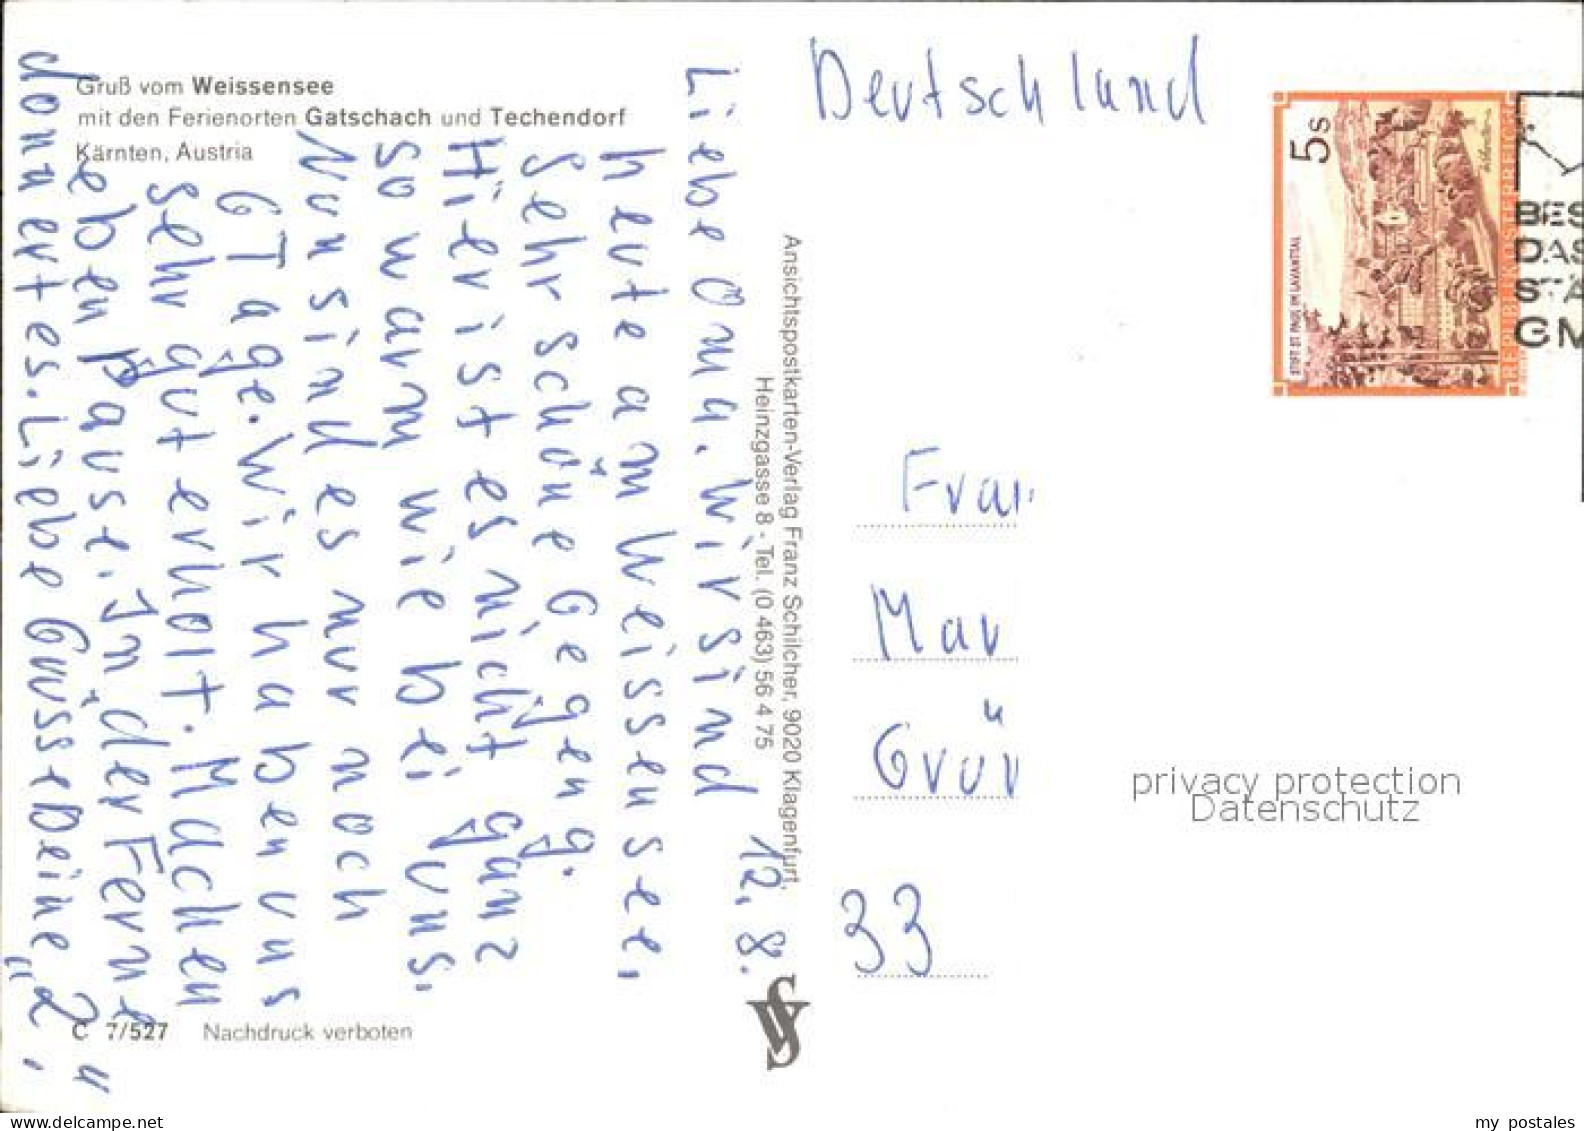 Gruß vom Weissensee
mit den Ferienorten Gatschach und Techendorf
Kärnten, Austria
12. 8.
Liebe Oma. Wir sind
heute am Weissensee,
Sehr schöne Gegeng.
Hier ist es nicht ganz
so warm wie bei uns.
Nun sind es nur noch
6 Tage. Wir haben uns
sehr gut erholt. Machen
eben Pause. In der Ferne
donnert es. Liebe Grüsse Deine „2"
C 7/527 Nachdruck verboten
Ansichtspostkarten-Verlag Franz Schilcher, 9020 Klagenfurt,
Heinzgasse 8 - Tel. (0 463) 56 4 75
Deutschland
5 S
STIFT ST. PAUL IM LAVANTTAL
REPUBLIK ÖSTERREICH
BES
DAS
STA
GM
Frau
Mar
Grün
33
privacy protection
Datenschutz
www.delcampe.net
my_postales